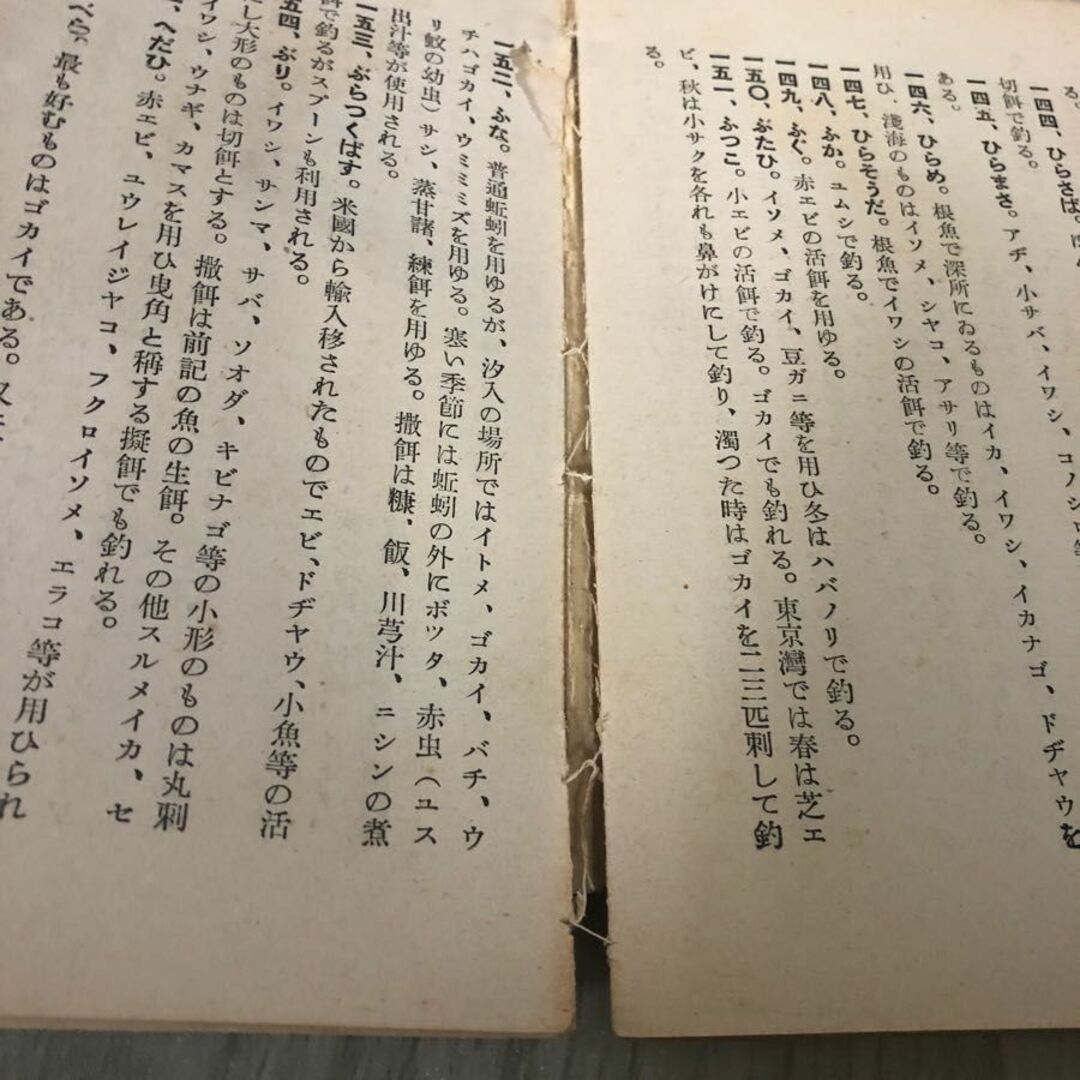 る。
一四四、ひらさば。
切餌で釣る。
一四五、ひらまさ。アヂ、小サバ、イワシ、コノシロ等
ある。
一四六、ひらめ。根魚で深所にゐるものはイカ、イワシ、イカナゴ、ドヂヤウを
用ひ、淺海のものはイソメ、シヤコ、アサリ等で釣る。
一四七、ひらそうだ。根魚でイワシの活餌で釣る。
一四八、ふか。ユムシで釣る。
一四九、ふぐ。赤エビの活餌を用ゆる。
一五〇、ぶたひ。イソメ、ゴカイ、豆ガニ等を用ひ冬はハバノリで釣る。
一五一、ふつこ。小エビの活餌で釣る。ゴカイでも釣れる。東京灣では春は芝エ
ビ、秋は小サクを各れも鼻がけにして釣り、濁つた時はゴカイを二三匹刺して釣
る。
一五二、ふな。普通蚯蚓を用ゆるが、汐入の場所ではイトメ、ゴカイ、バチ、ウ
チハゴカイ、ウミミミズを用ゆる。寒い季節には蚯蚓の外にボツタ、赤虫(ユス
リ蚊の幼虫)サシ、蒸甘諸、練餌を用ゆる。撒餌は糠、飯、川芎汁、ニシンの煮
出汁等が使用される。
一五三、ぶらつくばす。米國から輸入移されたものでエビ、ドヂヤウ、小魚等の活
餌で釣るがスプーンも利用される。
五四、ぶり。イワシ、サンマ、サバ、ソオダ、キビナゴ等の小形のものは丸刺
し大形のものは切餌とする。撒餌は前記の魚の生餌。その他スルメイカ、セ
イワシ、ウナギ、カマスを用ひ曳角と稱する擬餌でも釣れる。
、へだひ。赤エビ、ユウレイジヤコ、フクロイソメ、エラコ等が用ひられ
べら。最も好むものはゴカイである。